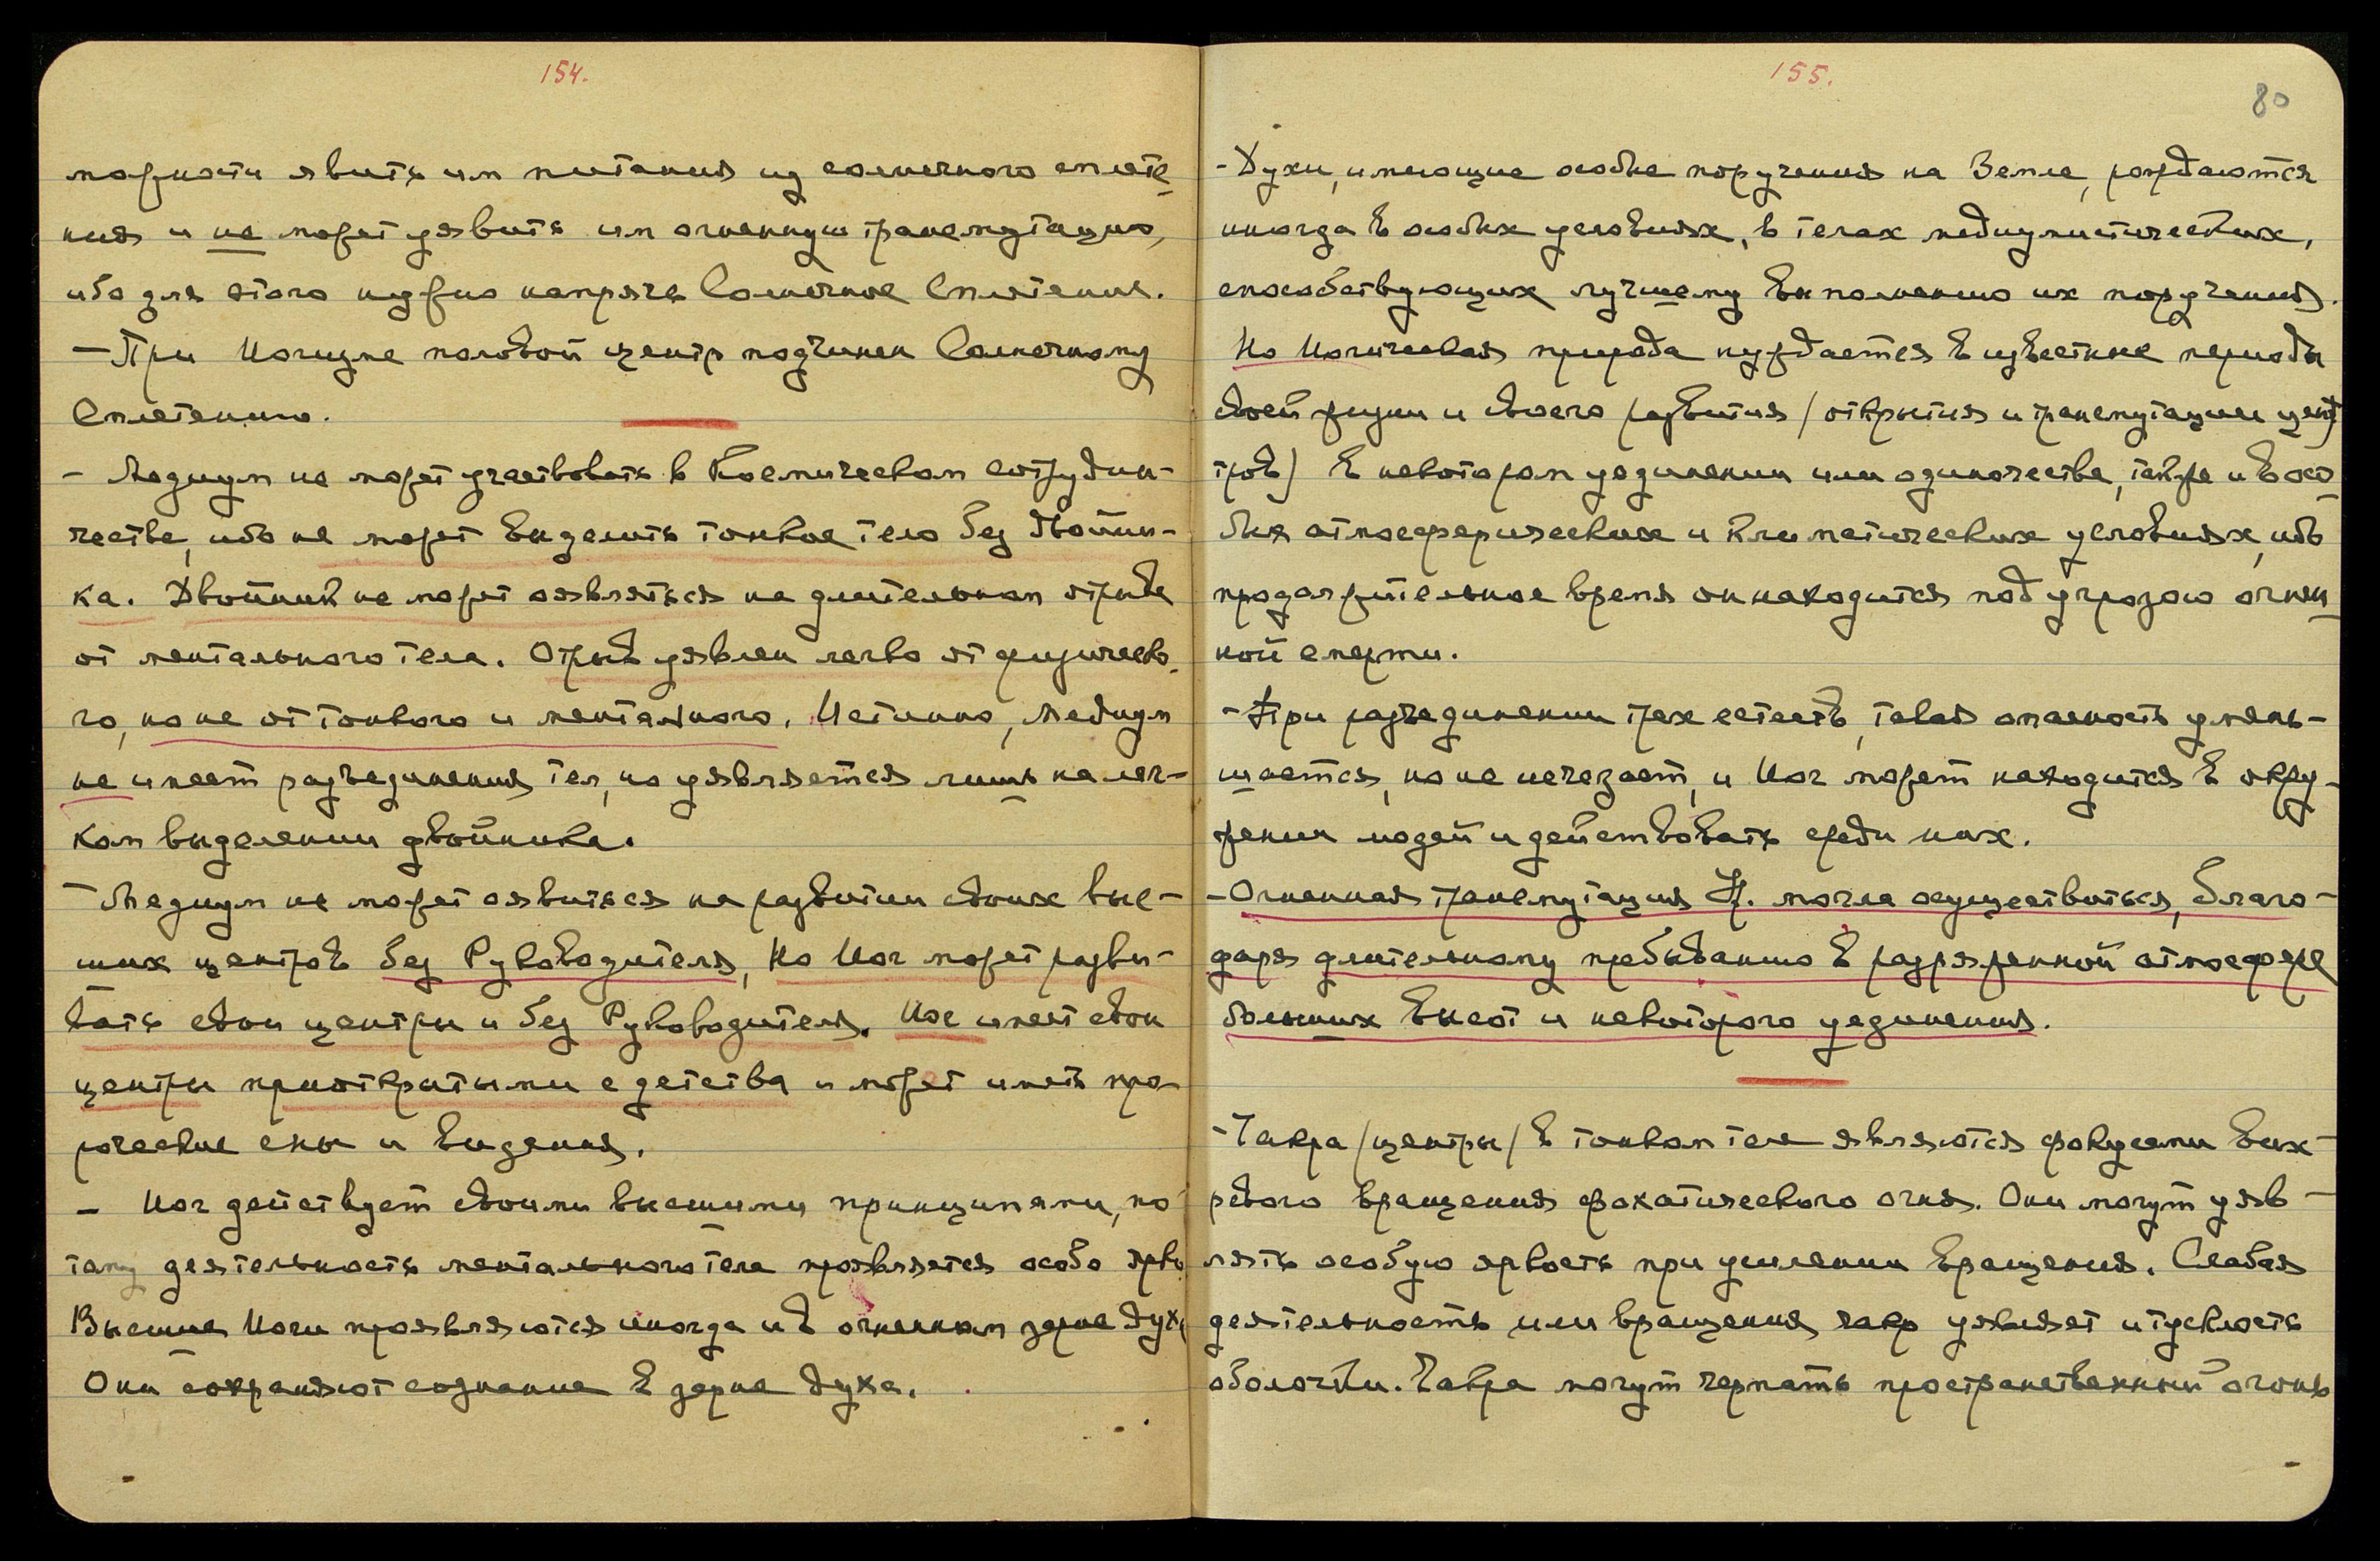 154.
можности явить им питания из солнечного сплете-
ния и не может уявить им огненную трансмутацию,
ибо для этого нужно напрячь Солнечное Сплетение.
— При Иогизме половой центр подчинен Солнечному
Сплетению.
- Медиум не может участвовать в Космическом сотрудни-
честве, ибо не может выделить тонкое тело без двойни-
ка. Двойник не может оявляться на длительном отрыве
от ментального тела. Отрыв уявлен легко от физическо-
го, но не от тонкого и ментального. Истинно, медиум
не имеет разъединения тел, но уявляется лишь на лег-
ком выделении двойника.
- Медиум не может оявиться на развитии своих выс-
ших центров без Руководителя, Но Иог может разви-
вать свои центры и без Руководителя. Иог имеет свои
центры приоткрытыми с детства и может иметь про-
роческие сны и видения.
- Иог действует своими высшими принципами, по-
тому деятельность ментального тела проявляется особо ярко
Высшие Иоги проявляются иногда и в огненном зерне духа
Они сохраняют сознание в зерне духа.
155.
80
- Духи, имеющие особые поручения на Земле, рождаются
иногда в особых условиях, в телах медиумистических,
способствующих лучшему выполнению их поручения.
Но Иогическая природа нуждается в известные периоды
своей жизни и своего развития /открытия и трансмутации цен-
тров/ в некотором уединении или одиночестве, также и в осо-
бых атмосферических и климатических условиях, ибо
продолжительное время он находится под угрозою огнен-
ной смерти.
- При разъединении трех естеств, такая опасность умень-
шается, но не исчезает, и Иог может находиться в окру-
жении людей и действовать среди них.
- Огненная трансмутация У. могла осуществиться, благо-
даря длительному пребыванию в разряженной атмосфере
больших высот и некоторого уединения.
- Чакра /центры/ в тонком теле являются фокусами вих-
ревого вращения фохатического огня. Они могут уяв-
лять особую яркость при усилении вращения. Слабая
деятельность или вращения чакр уявляет и тусклость
оболочки. Чакра могут черпать пространственный огонь